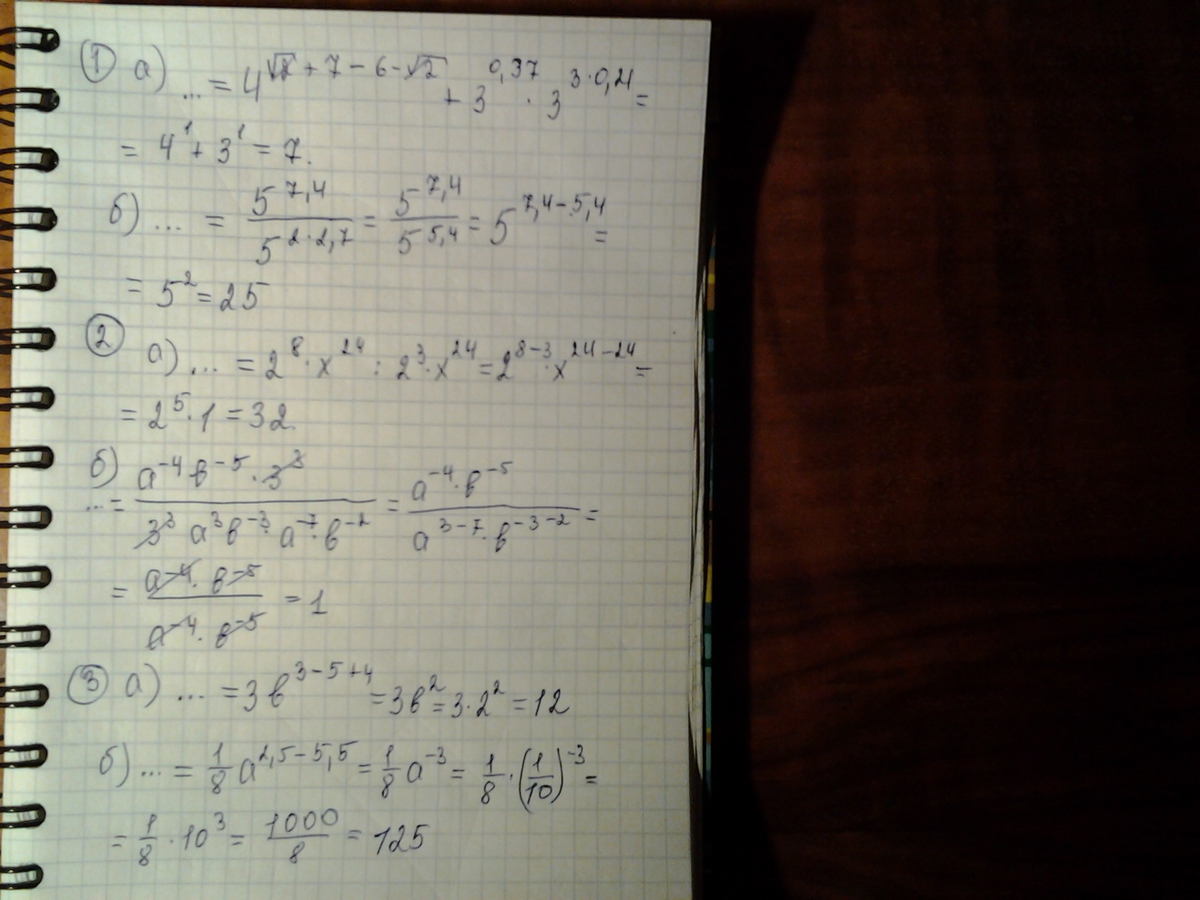 ① а) ... = 4^(√2 + 7 − 6 − √2) + 3^(0,37) · 3^(3·0,21) =
= 4^1 + 3^1 = 7.
б) ... = 5^(7,4) / 5^(2·2,7) = 5^(7,4) / 5^(5,4) = 5^(7,4−5,4) =
= 5^2 = 25
② а) ... = 2^8 · x^24 : 2^3 · x^24 = 2^(8−3) · x^(24−24) =
= 2^5 · 1 = 32.
б) ... = (a^(−4) b^(−5) · 3^3) / (3^3 a^3 b^(−3) · a^(−7) · b^(−2)) = (a^(−4) · b^(−5)) / (a^(3−7) · b^(−3−2)) =
= (a^(−4) · b^(−5)) / (a^(−4) · b^(−5)) = 1
③ а) ... = 3b^(3−5+4) = 3b^2 = 3·2^2 = 12
б) ... = 1/8 a^(2,5−5,5) = 1/8 a^(−3) = 1/8 · (1/10)^(−3) =
= 1/8 · 10^3 = 1000/8 = 125